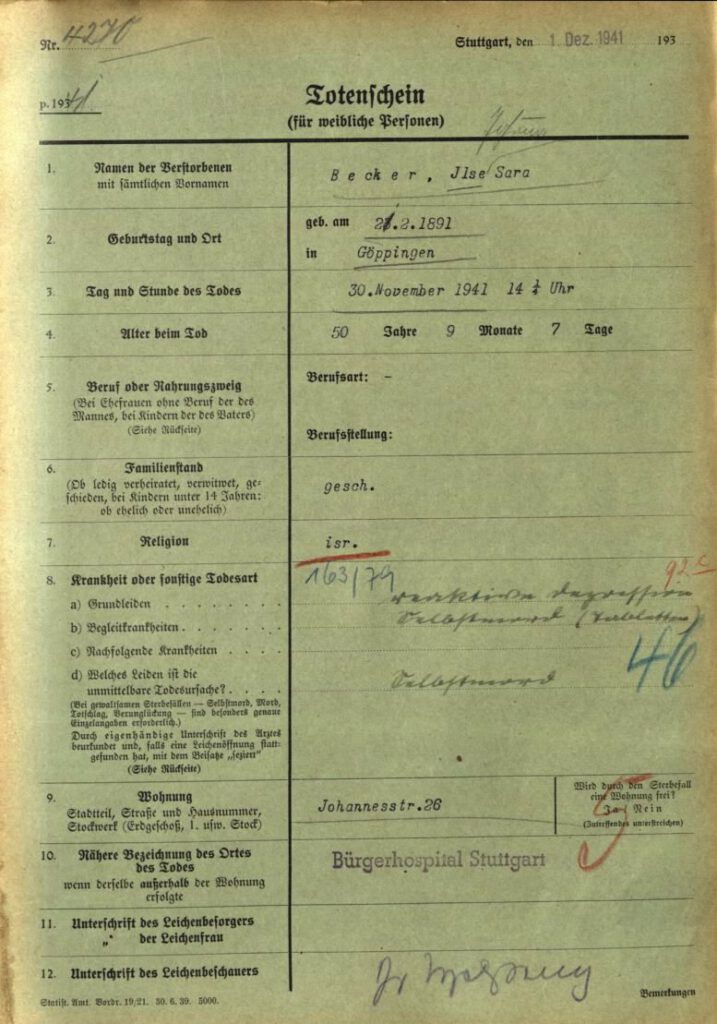 Nr. 4270
Stuttgart, den 1. Dez. 1941 193
p. 1941
Totenschein
(für weibliche Personen)
1. Namen der Verstorbenen
mit sämtlichen Vornamen
Becker, Jlse Sara
2. Geburtstag und Ort
geb. am 21.2.1891
in Göppingen
3. Tag und Stunde des Todes
30.November 1941 14 ¼ Uhr
4. Alter beim Tod
50 Jahre 9 Monate 7 Tage
5. Beruf oder Nahrungszweig
(Bei Ehefrauen ohne Beruf der des
Mannes, bei Kindern der des Vaters)
(Siehe Rückseite)
Berufsart: -
Berufsstellung:
6. Familienstand
(Ob ledig verheiratet, verwitwet, ge-
schieden, bei Kindern unter 14 Jahren:
ob ehelich oder unehelich)
gesch.
7. Religion
isr.
8. Krankheit oder sonstige Todesart
163/79
92 c
a) Grundleiden . . . . . . .
reaktive Depression
b) Begleitkrankheiten . . . . .
Selbstmord (Tabletten)
c) Nachfolgende Krankheiten . . . .
46
d) Welches Leiden ist die
unmittelbare Todesursache? . . . .
Selbstmord
(Bei gewaltsamen Sterbefällen — Selbstmord, Mord,
Totschlag, Verunglückung — sind besonders genaue
Einzelangaben erforderlich.)
Durch eigenhändige Unterschrift des Arztes
beurkundet und, falls eine Leichenöffnung statt-
gefunden hat, mit dem Beisatze „seziert"
(Siehe Rückseite)
9. Wohnung
Stadtteil, Straße und Hausnummer,
Stockwerk (Erdgeschoß, 1. usw. Stock)
Johannesstr.26
Wird durch den Sterbefall
eine Wohnung frei?
Ja, Nein
(Zutreffendes unterstreichen)
10. Nähere Bezeichnung des Ortes
des Todes
wenn derselbe außerhalb der Wohnung
erfolgte
Bürgerhospital Stuttgart
11. Unterschrift des Leichenbesorgers
„ der Leichenfrau
12. Unterschrift des Leichenbeschauers
Dr
Statist. Amt. Vordr. 19/21. 30. 6. 39. 5000.
Bemerkungen